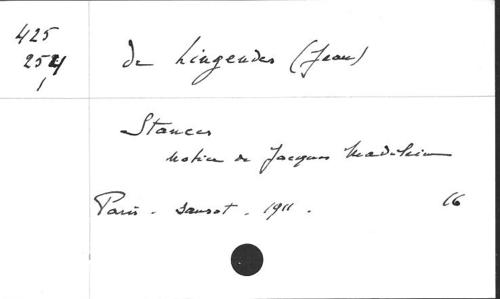 425
254
1
de Lingendes (Jean)
Stances
Notice de Jacques Madeleine
Paris - Sansot - 1911.
16